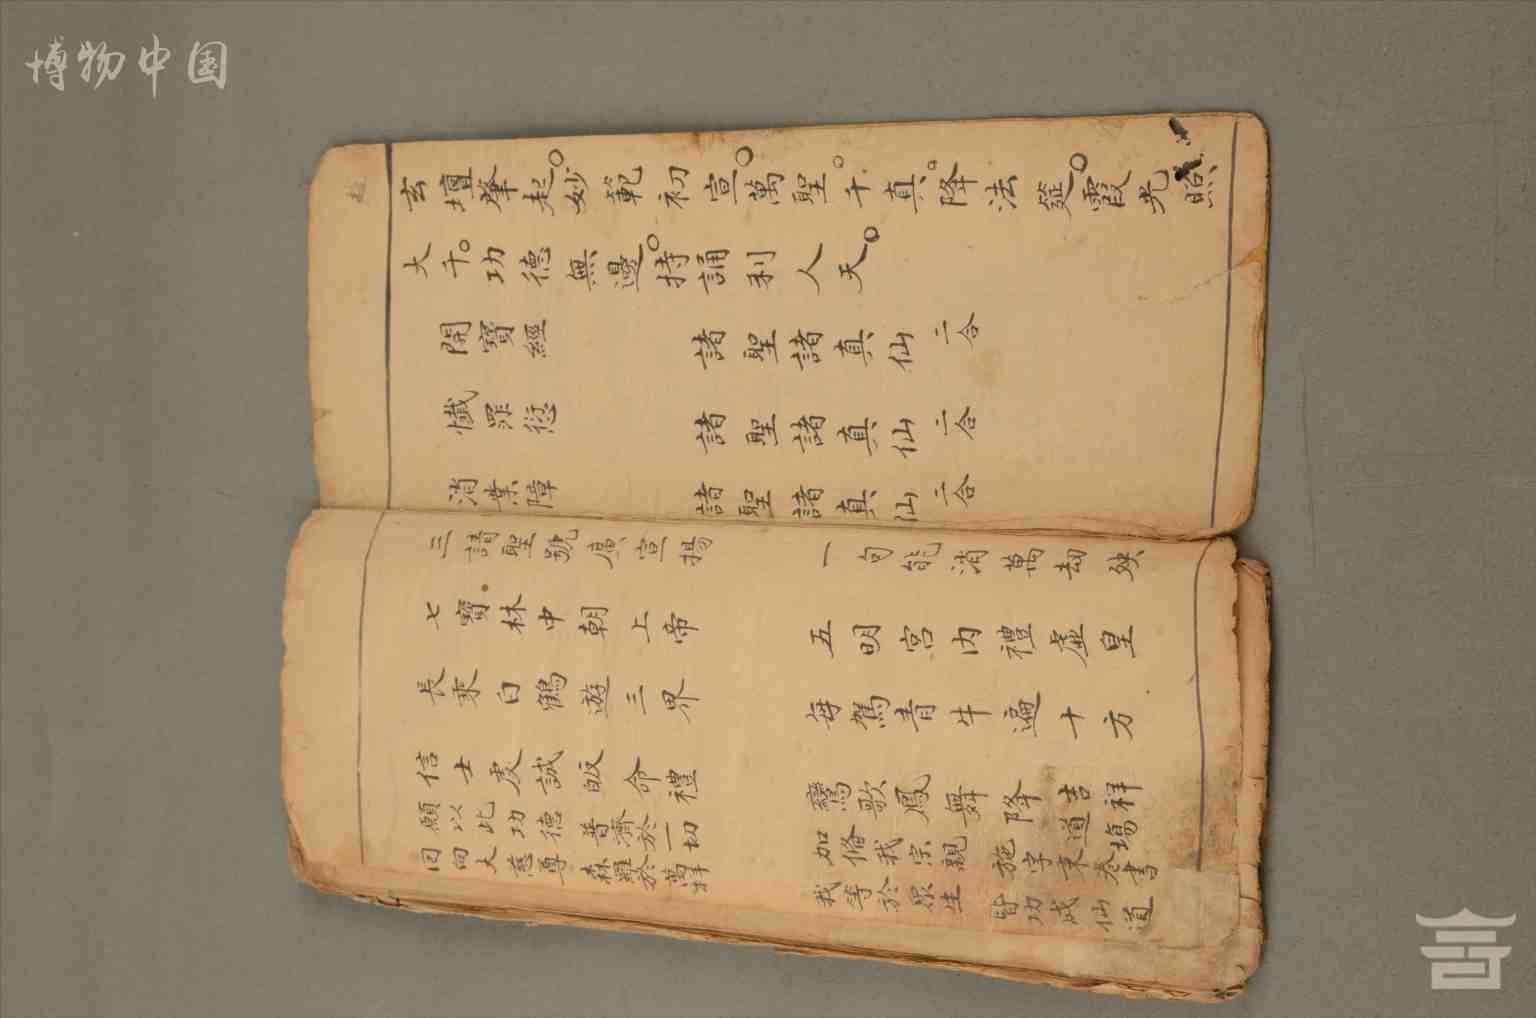 博物中国
玄壇肇起○妙範初宣○萬聖○千真○降法筵○霞光照
大千○功德無邊○持誦利人天○
開寶經 諸聖諸真仙 二合
懺罪愆 諸聖諸真仙 二合
消業障 諸聖諸真仙 二合
三請聖號廣宣揚 一句能消萬劫殃
七寶林中朝上帝 五明宮內禮虛皇
長乘白鶴遊三界 每駕青牛遍十方
信士虔誠皈命禮 鸞歌鳳舞降吉祥
願以此功德 普濟於一切 加脩我宗親 施字 道場書
回向大慈尊 森羅於萬 我等於眾生 皆功成仙道